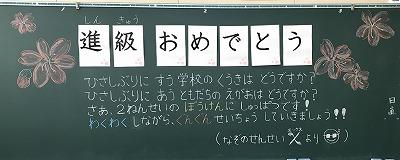 しん きゅう
進級 おめでとう
ひさしぶりに すう 学校の くうきは どうですか?
ひさしぶりに あう ともだちの えがおは どうですか?
さあ、2ねんせいの ぼうけんに しゅっぱつです!
わくわくしながら、ぐんぐん せいちょうしていきましょう!!
(なぞのせんせい より)
日直